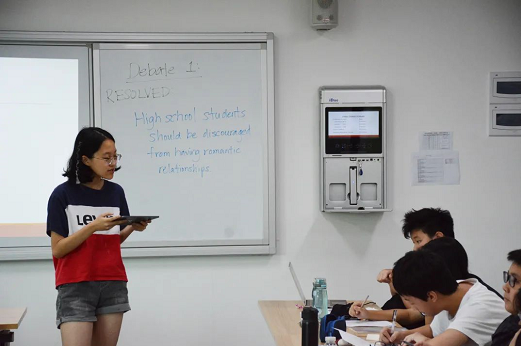 Debate 1:
RESOLVED
High school students
should be discouraged
from having romantic
relationships